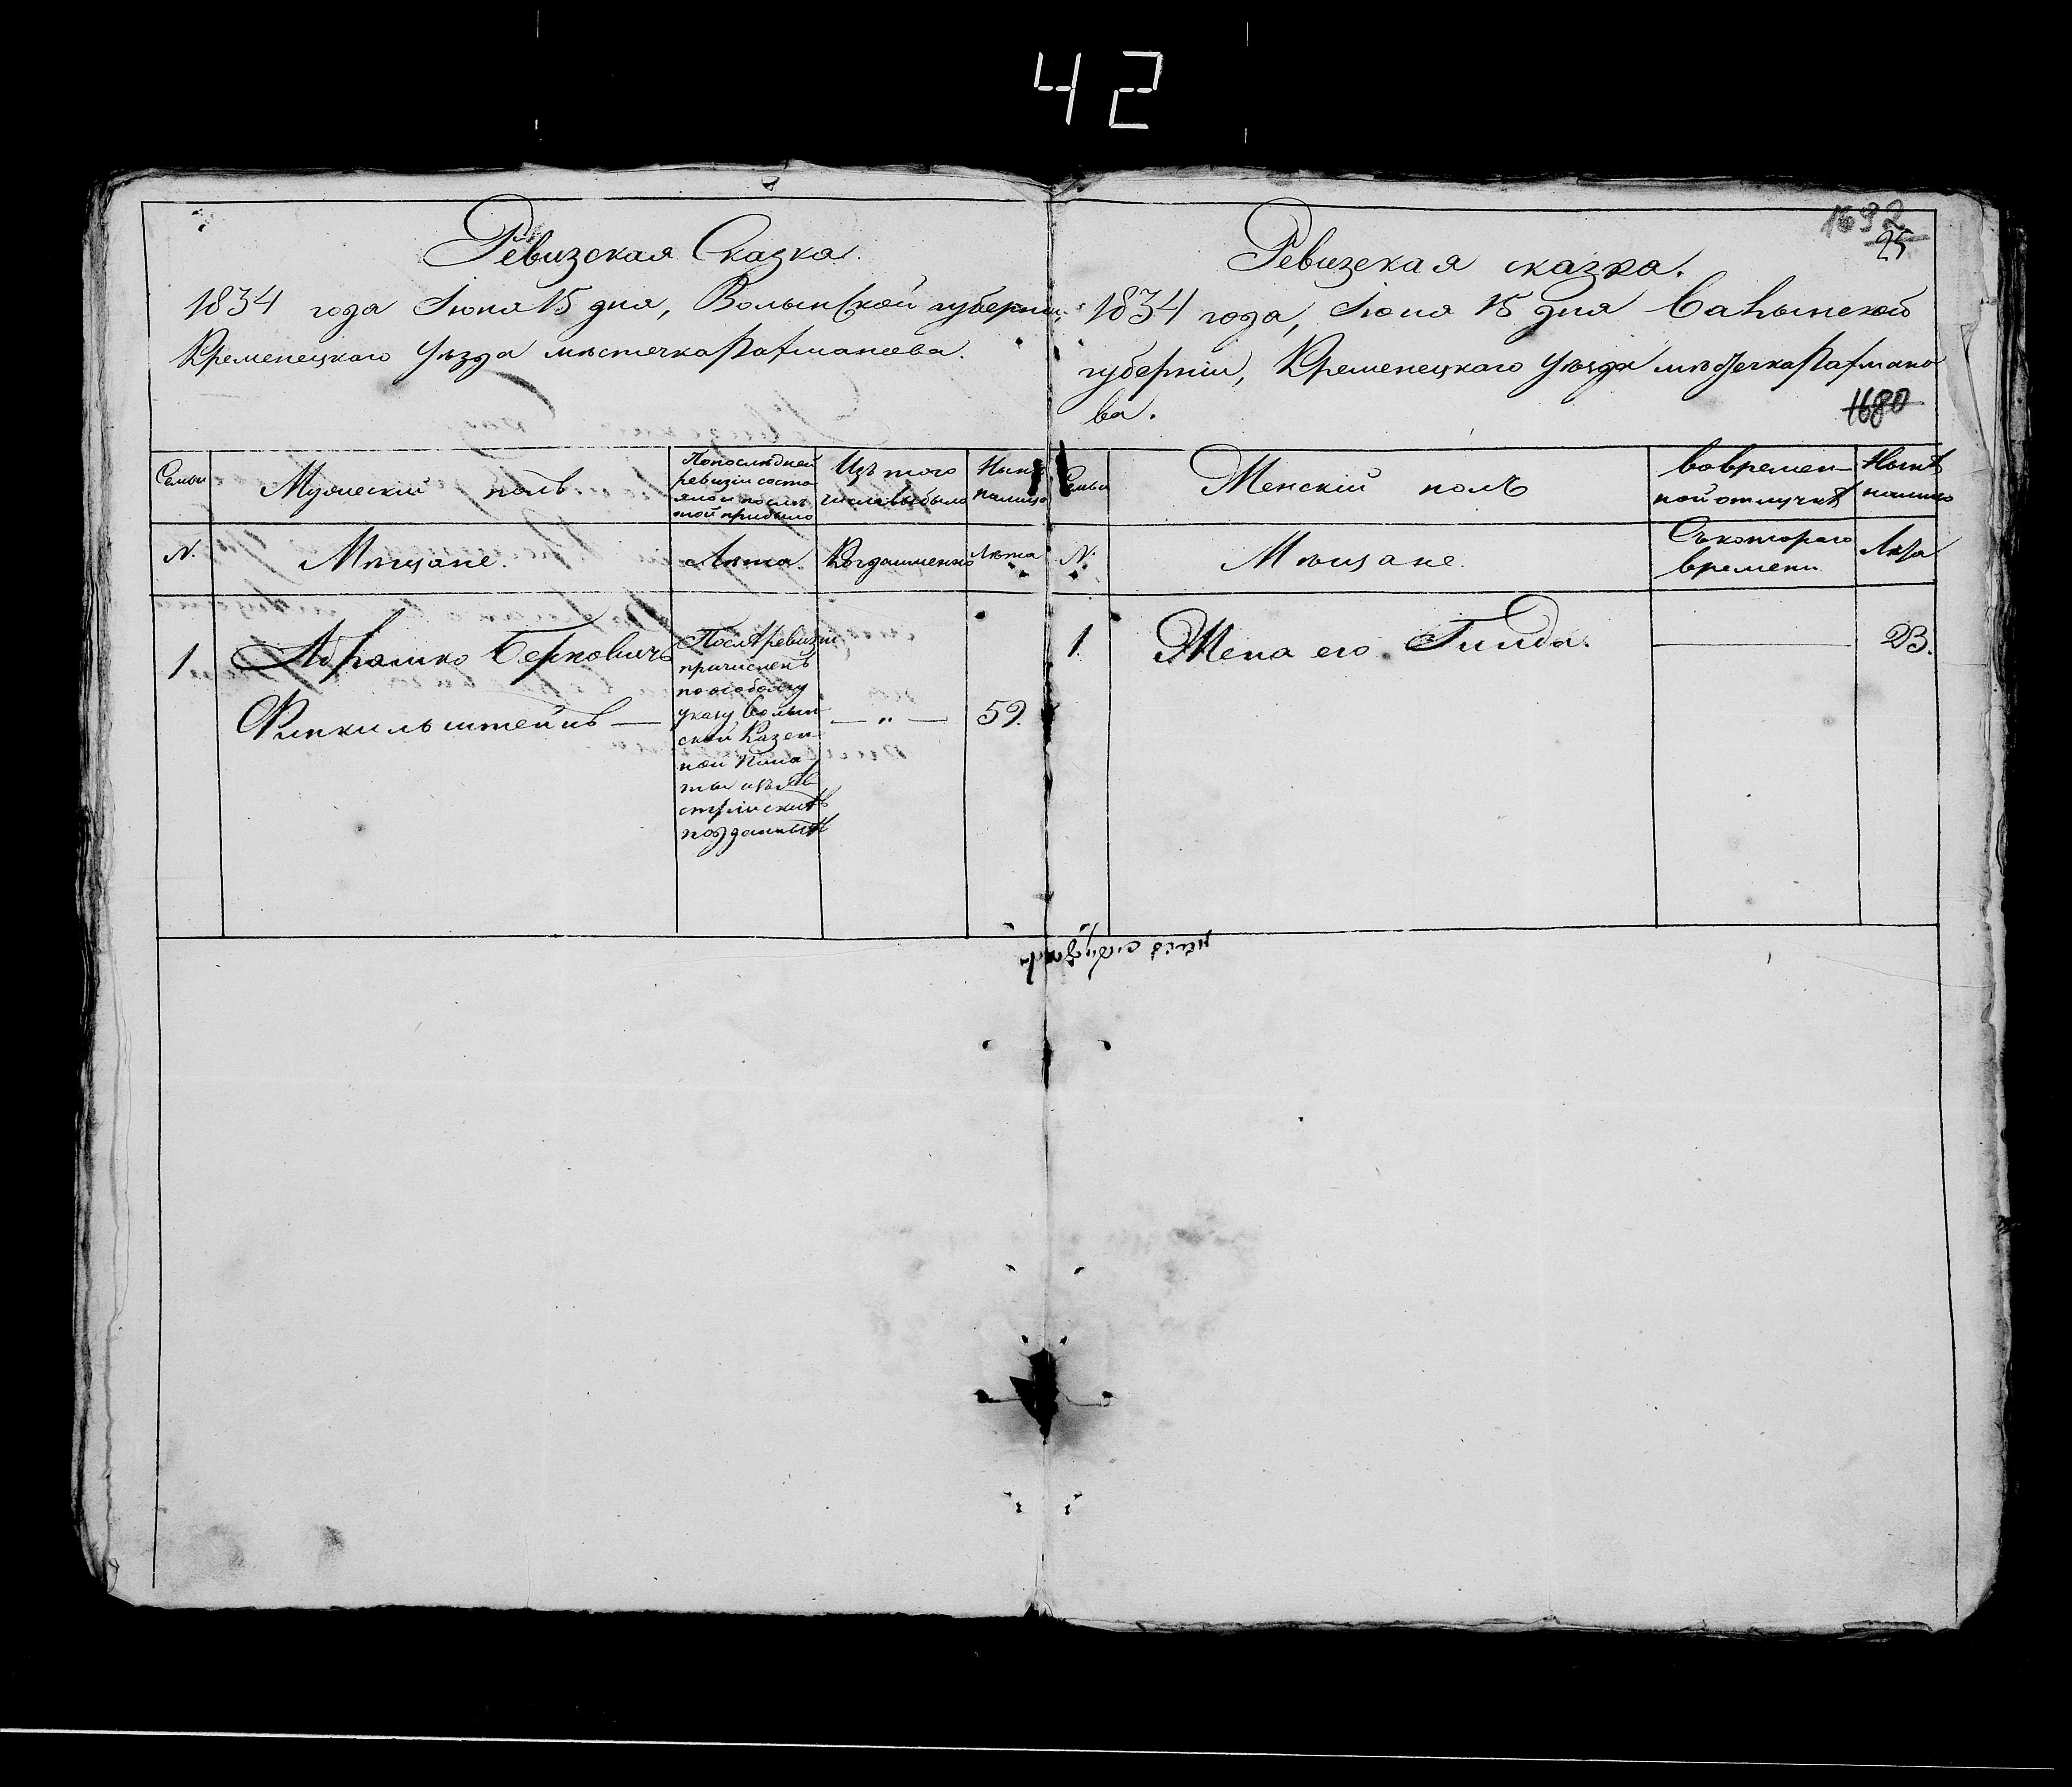 42
Ревизская Сказка.
1834 года Іюня 15 дня, Волынской губерніи,
Кременецкаго Уѣзда мѣстечка Рахманова.
Семьи
Мужескій полъ
По послѣдней
ревизіи состо
яло и послѣ
той прибыло
Изъ того
числа выбыло
Нынѣ
налицо
N.
Мѣщане.
Лѣта.
Когда именно
Лѣта
1
Абрамко Берковичъ
Финкильштейнъ —
Послѣ ревизіи
причисленъ
по особому
указу Волын
ской Казен
ной Пала
ты изъ Ав
стрійскихъ
подданныхъ
— „ —
59.
1692
25
Ревизская сказка.
1834 года, Іюня 15 дня Волынской
губерніи, Кременецкаго Уѣзда мѣстечка Рахмано
ва.
1680
Семьи
Женскій полъ
Во времен-
ной отлучкѣ
Нынѣ
налицо
N.
Мѣщане.
Съ котораго
времени
Лѣта
1.
Жена его Гинда.
23.